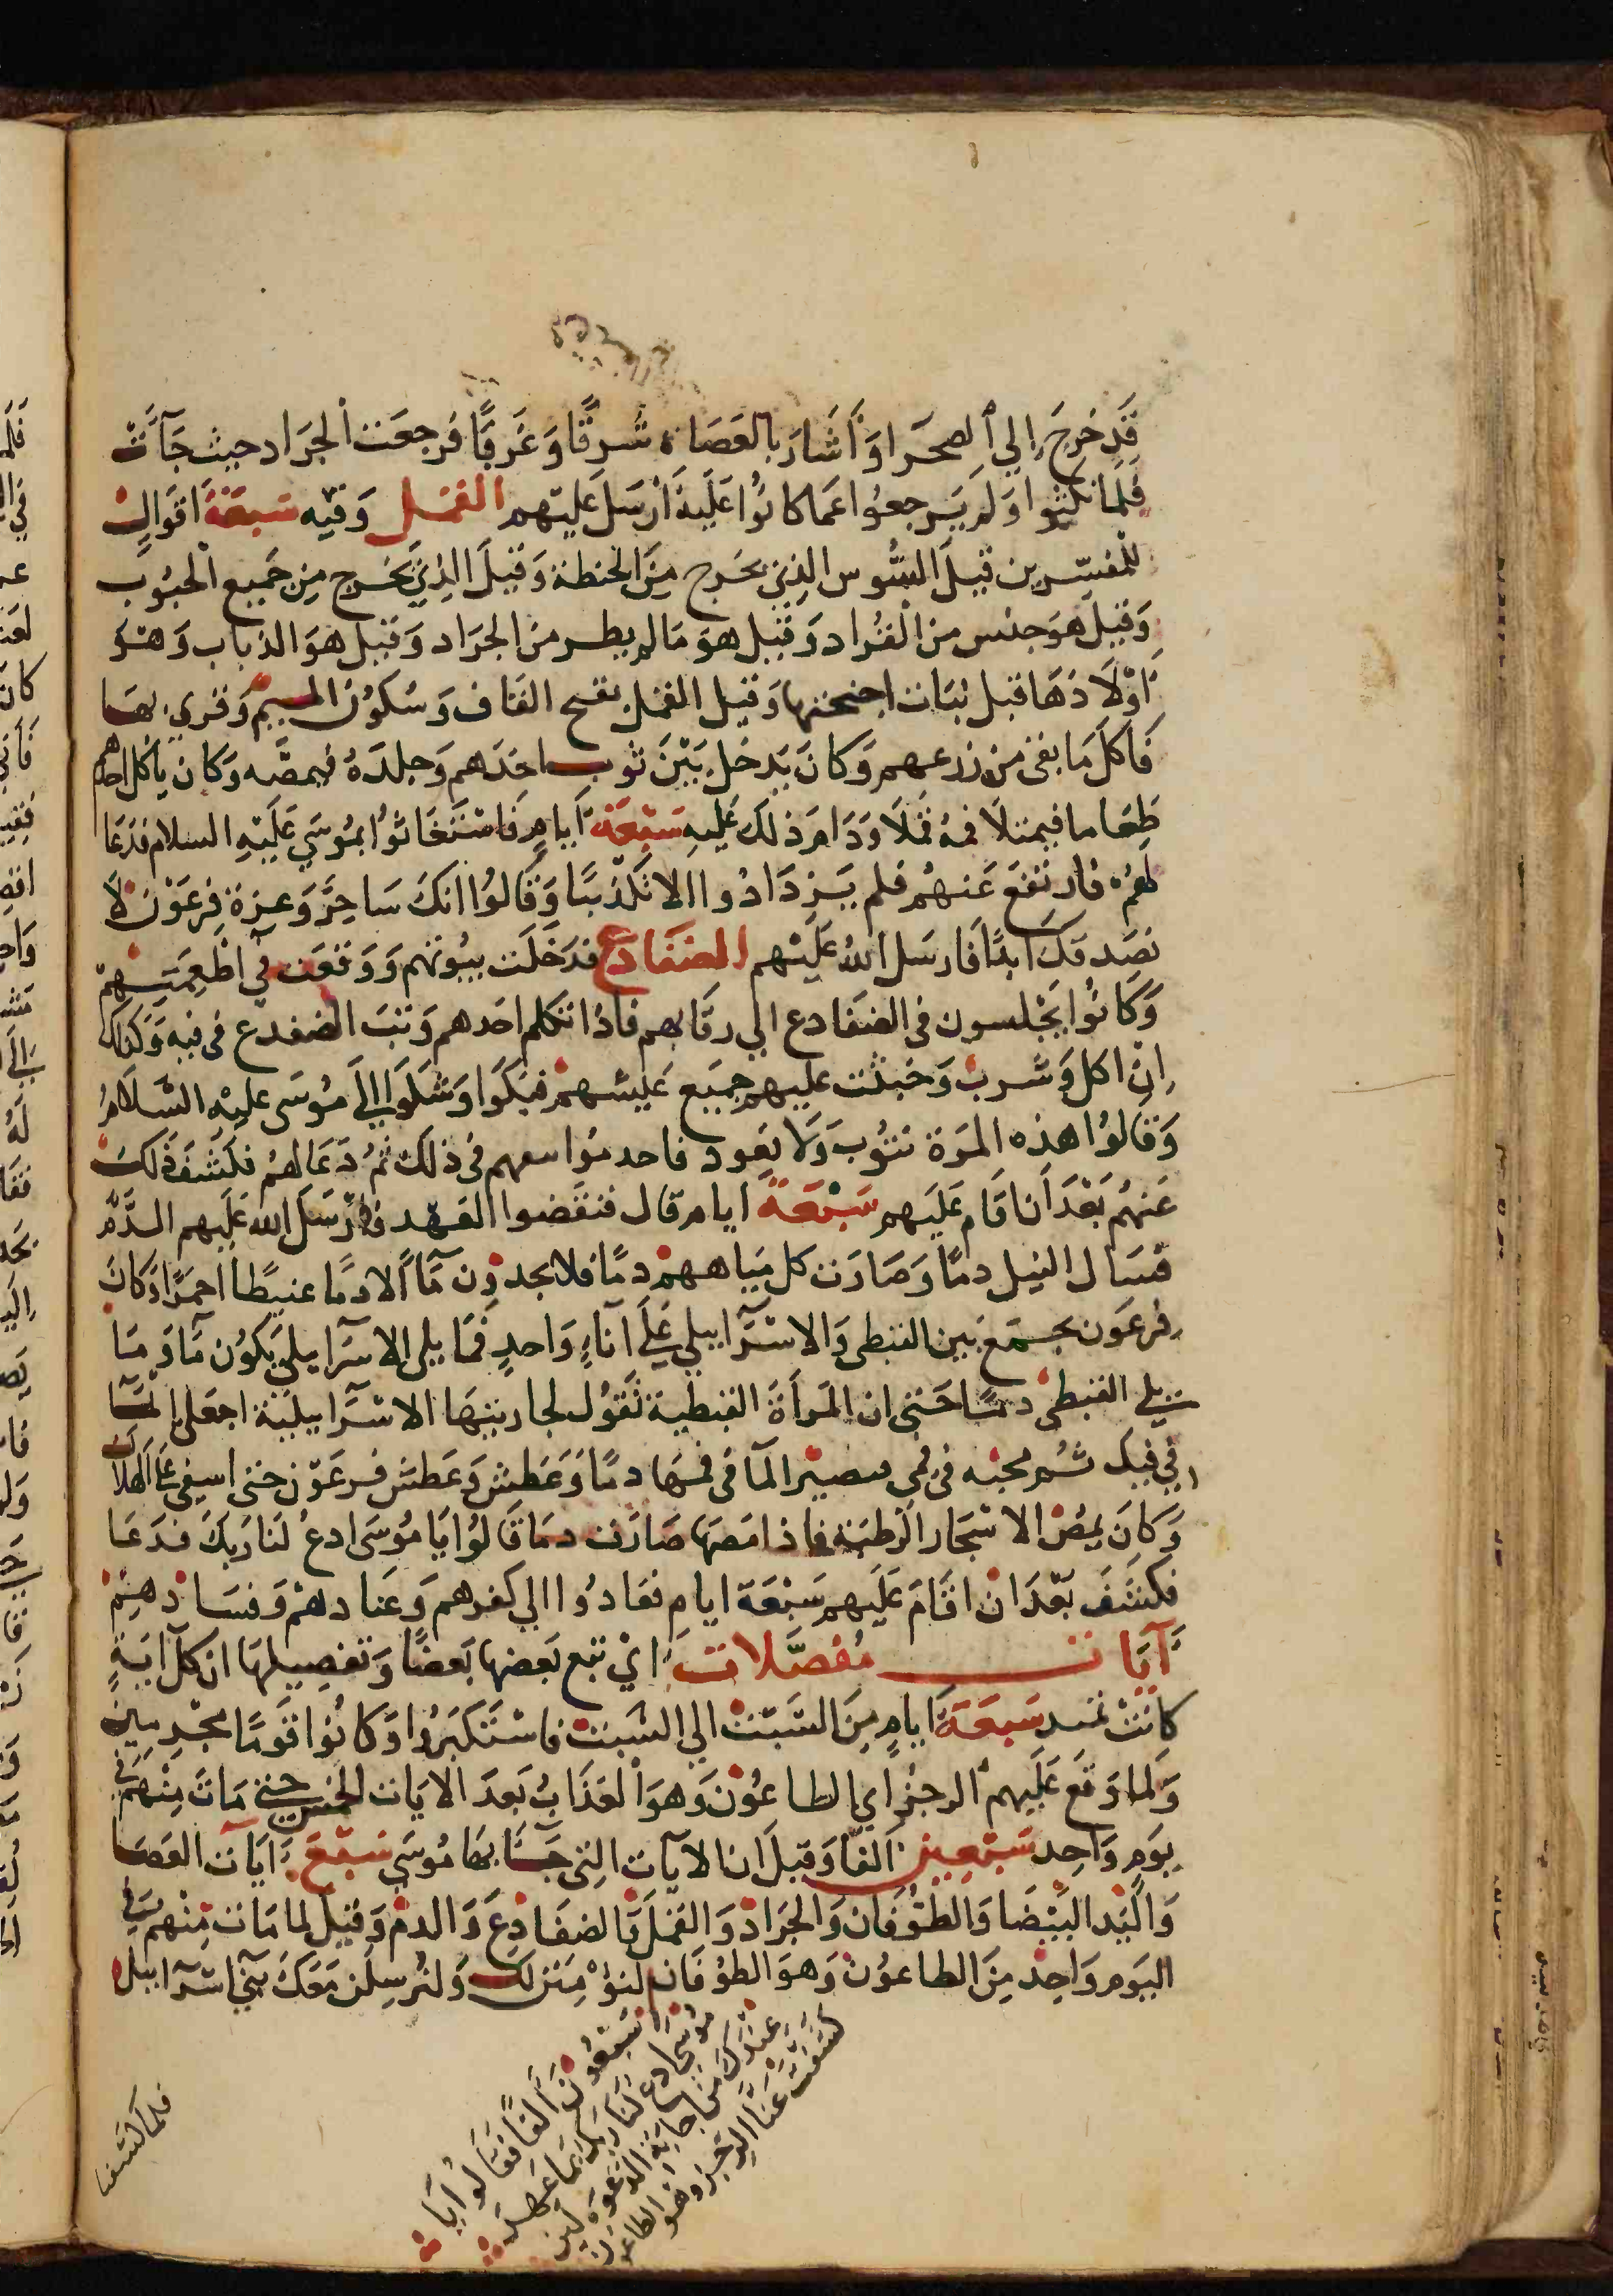 قَدِ خرجَ الي الصحَرا وَأشَارَ بالعَصَاه شرقًا وَغَربًا فرجعَت الجرَاد حيث جَآت
فلما نكثوا وَلم يَرجعُوا عَما كانُوا عَليَه أَرسَلَ عَليَهم القمَل وَفيه سَبعَة اقوَال
للمفسّرين قيلَ السُّوس الذِي يخرج مِنَ الحنطة وَقيلَ الذِي يَخرج مِن جَميع الحبُوب
وَقيل هوَ جنس من القُراد وَقيل هوَ مَا لم يطر من الجرَاد وَقيل هوَ الذباب وَهوَ
اَوْلَادُهَا قبل نبَات اجنحتها وَقيل القمل بفتح القاف وَسُكون الميم وَقري بهَا
فَاكلَ مَا بقى من زرعهم وَكانَ يَدخل بَيْنَ ثوب احَدهم وَجلدَهُ فيمصّه وَكان ياكل احدهم
طعَاما فيمتلاَ فمهُ قملا وَدَامَ ذلكَ عَليهِ سَبعَة اَيام فاستَغَاثوا بموُسَي عَليَهِ السلام فدَعَا
لهم فارتفعَ عَنهُم فلم يَزدَادُوا الا تكذيبًا وَقَالوُا انكَ سَاحِرٌ وَعزة فِرعَوْن لَا
نصَدقكَ ابدًا فَارسَل اللهُ عَليَهم الضفَادع فدَخَلَت بيُوتهم وَوَقعَت في اطعِمَتهِمْ
وَكانُوا يَجْلسون في الضفَادع الي رقَابهم فاذا تكلم احَدهم وَثبَ الضفدع في فيه وَكذلك
اِن اكل وَشرب وَخبثت عليهم جميَع عَيشهم فبكَوا وَشكَوا الي مُوسَى عليه السّلامُ
وَقالوُا هذه المرَة نتوُبَ وَلا نعُود فاخد موُاسعهم في ذلكَ ثم دَعَا لهُم فكشَفَ ذلكَ
عَنهُم بَعْدَ اَن اقَام عَليَهم سَبعَة ايام قال فنقضوا العَهد فارْسَلَ الله عَليهم الدَّم
فسَال النيل دمًا وَصَارَت كل ميَاههمْ دمًا فلا يجدوُن مَآ الا دمًا عبيطًا احمَرًا وَكانَ
فرعَون يجمَعَ بَين القبطي وَالاسْرآييلي عَلَي انآءٍ وَاحدٍ فمَا يلي الاسرآييلي يَكوُن مَآ وَمَا
يلي القبطي دمًا حَتى ان المرَأةَ القبطية تَقوُل لجاريتهَا الاسرآييليَة اجعَلي المآ
في فيك ثم مجيه في فمي فيصيْر المآ في فمهَا دمًا وَعَطِشَ وَعَطش فرعَوْن حتى اسفي عَلَى الهلاك
وَكانَ يمصْ الاشجَار الرَطبَة فاذا مَصهَا صَارَت دمَا قَالوُا يَا مُوسَى ادعُ لَنا ربكَ فدَعَا
فكشَفَ بَعْدَ ان اقامَ عَليَهم سَبْعَة ايامٍ فعَادُوا الي كفرهم وَعَنادهمْ وَفسَادهِمْ
آيَات مُفصَّلَات اي تتبع بَعضهَا بَعضًا وَتفصِيلهَا ان كلَ ايَةٍ
كانتْ تمتد سَبعَة اَيامٍ مِنَ السَبت الي السَبت فاستَكبَرُوا وَكانُوا قَومًا مجْرِمين
وَلما وَقَع عَليَهم الرجزُ اي الطاعُوْن وَهوَ العَذابُ بَعدَ الايَات الخمس حتى مَاتَ مِنْهم في
يوَمٍ وَاحِد سَبْعين الفًا وَقيل ان الآيات التي جَآ بهَا مُوُسَي سَبْعَ اَيَآت العَصَا
وَاليَد البيْضَا وَالطوُفَان وَالجرَاد وَالقمَلَ وَالضفَادِعَ وَالدمْ وَقيل لما مَات مِنْهم في
اليَوم وَاحِد مِنَ الطاعوُن وَهوَ الطوُفَان لنؤْمِنَن لكَ وَلنرْسِلَن مَعَكَ بَني اسْرآييل
سَبْعُوُن اَلفًا فقَالوُا يَا
موُسَي ادع لنَا ربكَ بمَا عَهدَ
عِنْدَكَ من اجابَة الدَعوَه لين
كشَفتَ عَنَّا الرِجْز وَهوَ الطاعون
فلما كشفنا